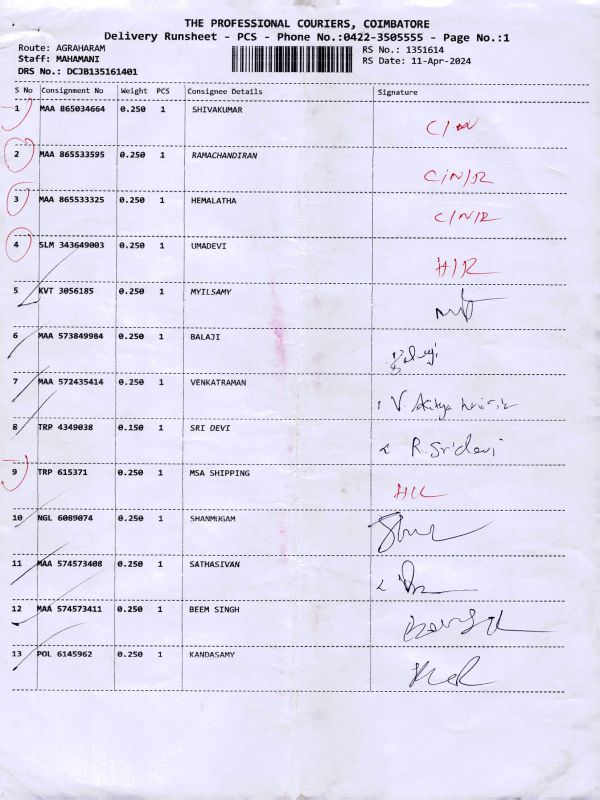 THE PROFESSIONAL COURIERS, COIMBATORE
Delivery Runsheet - PCS - Phone No.:0422-3505555 - Page No.:1
Route: AGRAHARAM RS No.: 1351614
Staff: MAHAMANI RS Date: 11-Apr-2024
DRS No.: DCJB135161401
S No Consignment No Weight PCS Consignee Details Signature
1 MAA 865034664 0.250 1 SHIVAKUMAR
2 MAA 865533595 0.250 1 RAMACHANDIRAN C/N/R
3 MAA 865533325 0.250 1 HEMALATHA C/N/R
4 SLM 343649003 0.250 1 UMADEVI H/R
5 KVT 3056185 0.250 1 MYILSAMY
6 MAA 573849984 0.250 1 BALAJI Balaji
7 MAA 572435414 0.250 1 VENKATRAMAN V
8 TRP 4349038 0.150 1 SRI DEVI R. Sridevi
9 TRP 615371 0.250 1 MSA SHIPPING
10 NGL 6089074 0.250 1 SHANMUGAM
11 MAA 574573408 0.250 1 SATHASIVAN
12 MAA 574573411 0.250 1 BEEM SINGH
13 POL 6145962 0.250 1 KANDASAMY